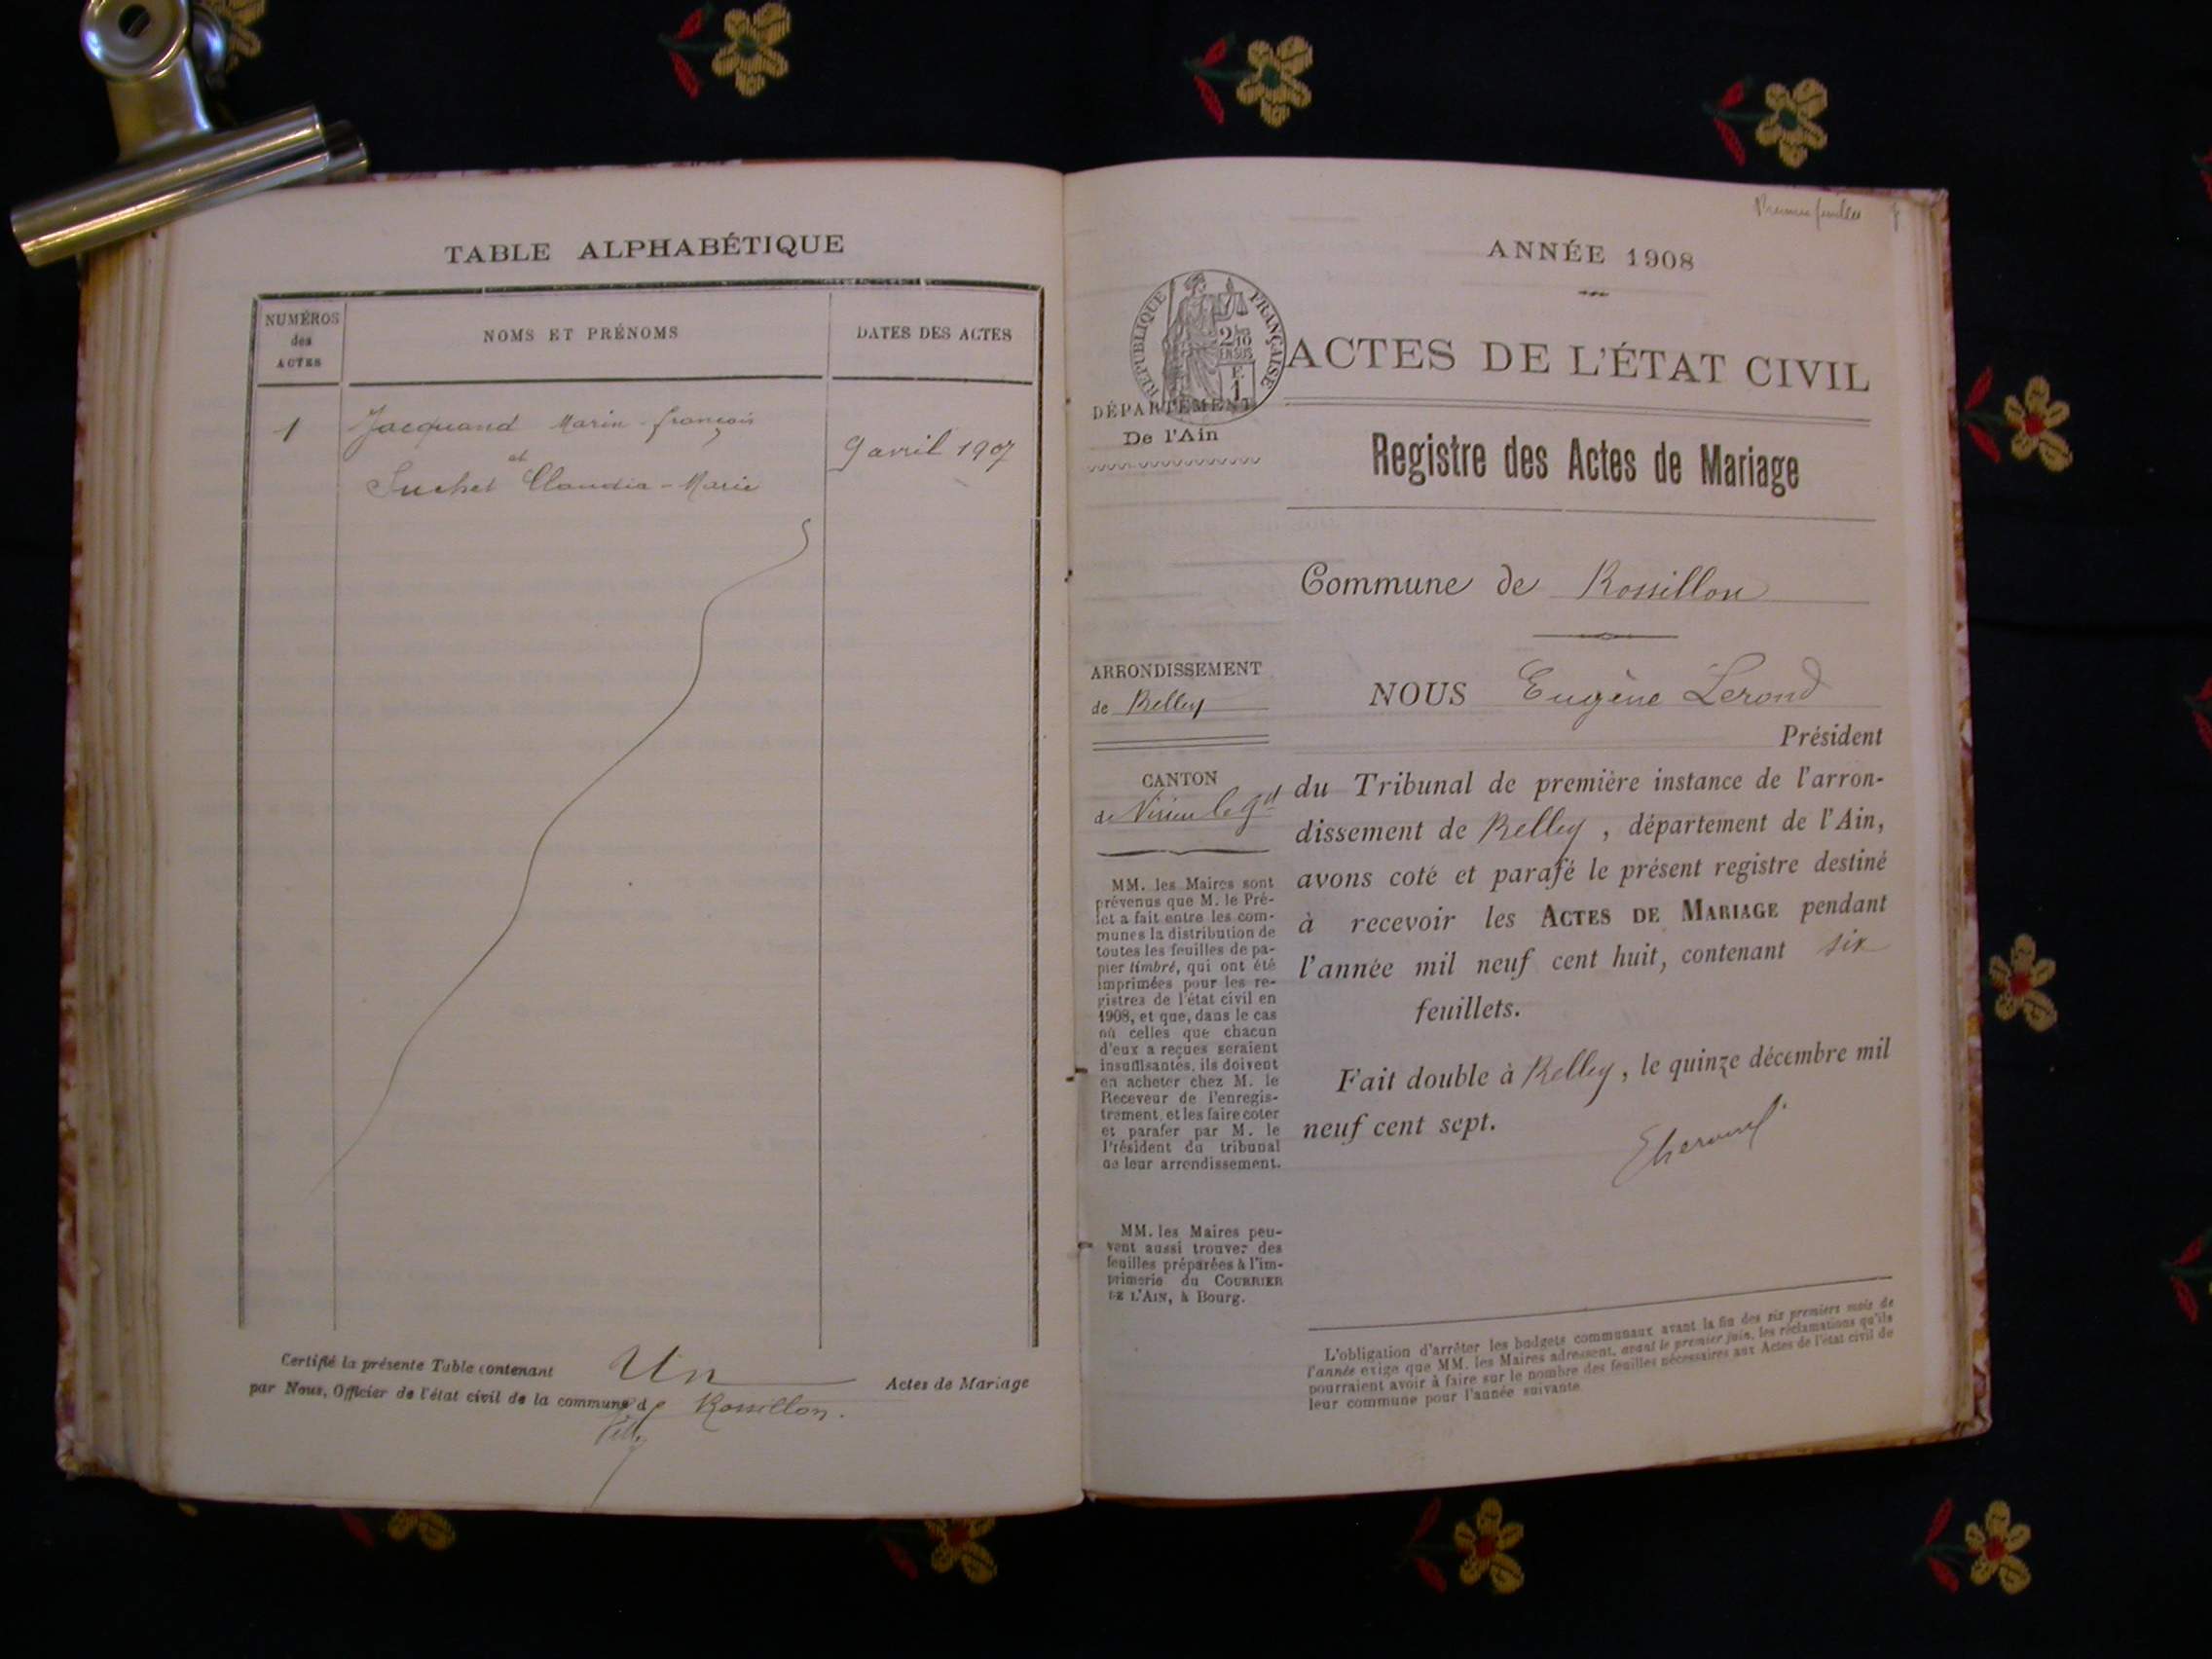 TABLE ALPHABÉTIQUE
NUMÉROS
des
ACTES
NOMS ET PRÉNOMS
DATES DES ACTES
1
Jacquand Marin-françois
et
Suchet Claudia-Marie
9 avril 1907
Certifié la présente Table contenant Un Actes de Mariage
par Nous, Officier de l'état civil de la commune de Rossillon.
ANNÉE 1908
RÉPUBLIQUE FRANÇAISE
2/10
EN SUS
F.
1
ACTES DE L'ÉTAT CIVIL
DÉPARTEMENT
De l'Ain
Registre des Actes de Mariage
Commune de Rossillon
ARRONDISSEMENT
de Belley
CANTON
de Virieu le gd
MM. les Maires sont
prévenus que M. le Pré-
fet a fait entre les com-
munes la distribution de
toutes les feuilles de pa-
pier timbré, qui ont été
imprimées pour les re-
gistres de l'état civil en
1908, et que, dans le cas
où celles que chacun
d'eux a reçues seraient
insuffisantes, ils doivent
en acheter chez M. le
Receveur de l'enregis-
trement, et les faire coter
et parafer par M. le
Président du tribunal
de leur arrondissement.
MM. les Maires peu-
vent aussi trouver des
feuilles préparées à l'im-
primerie du COURRIER
DE L'AIN, à Bourg.
NOUS Eugène Lerond
Président
du Tribunal de première instance de l'arron-
dissement de Belley, département de l'Ain,
avons coté et parafé le présent registre destiné
à recevoir les ACTES DE MARIAGE pendant
l'année mil neuf cent huit, contenant six
feuillets.
Fait double à Belley, le quinze décembre mil
neuf cent sept.
L'obligation d'arrêter les budgets communaux avant la fin des six premiers mois de
l'année exige que MM. les Maires adressent, avant le premier juin, les réclamations qu'ils
pourraient avoir à faire sur le nombre des feuilles nécessaires aux Actes de l'état civil de
leur commune pour l'année suivante.